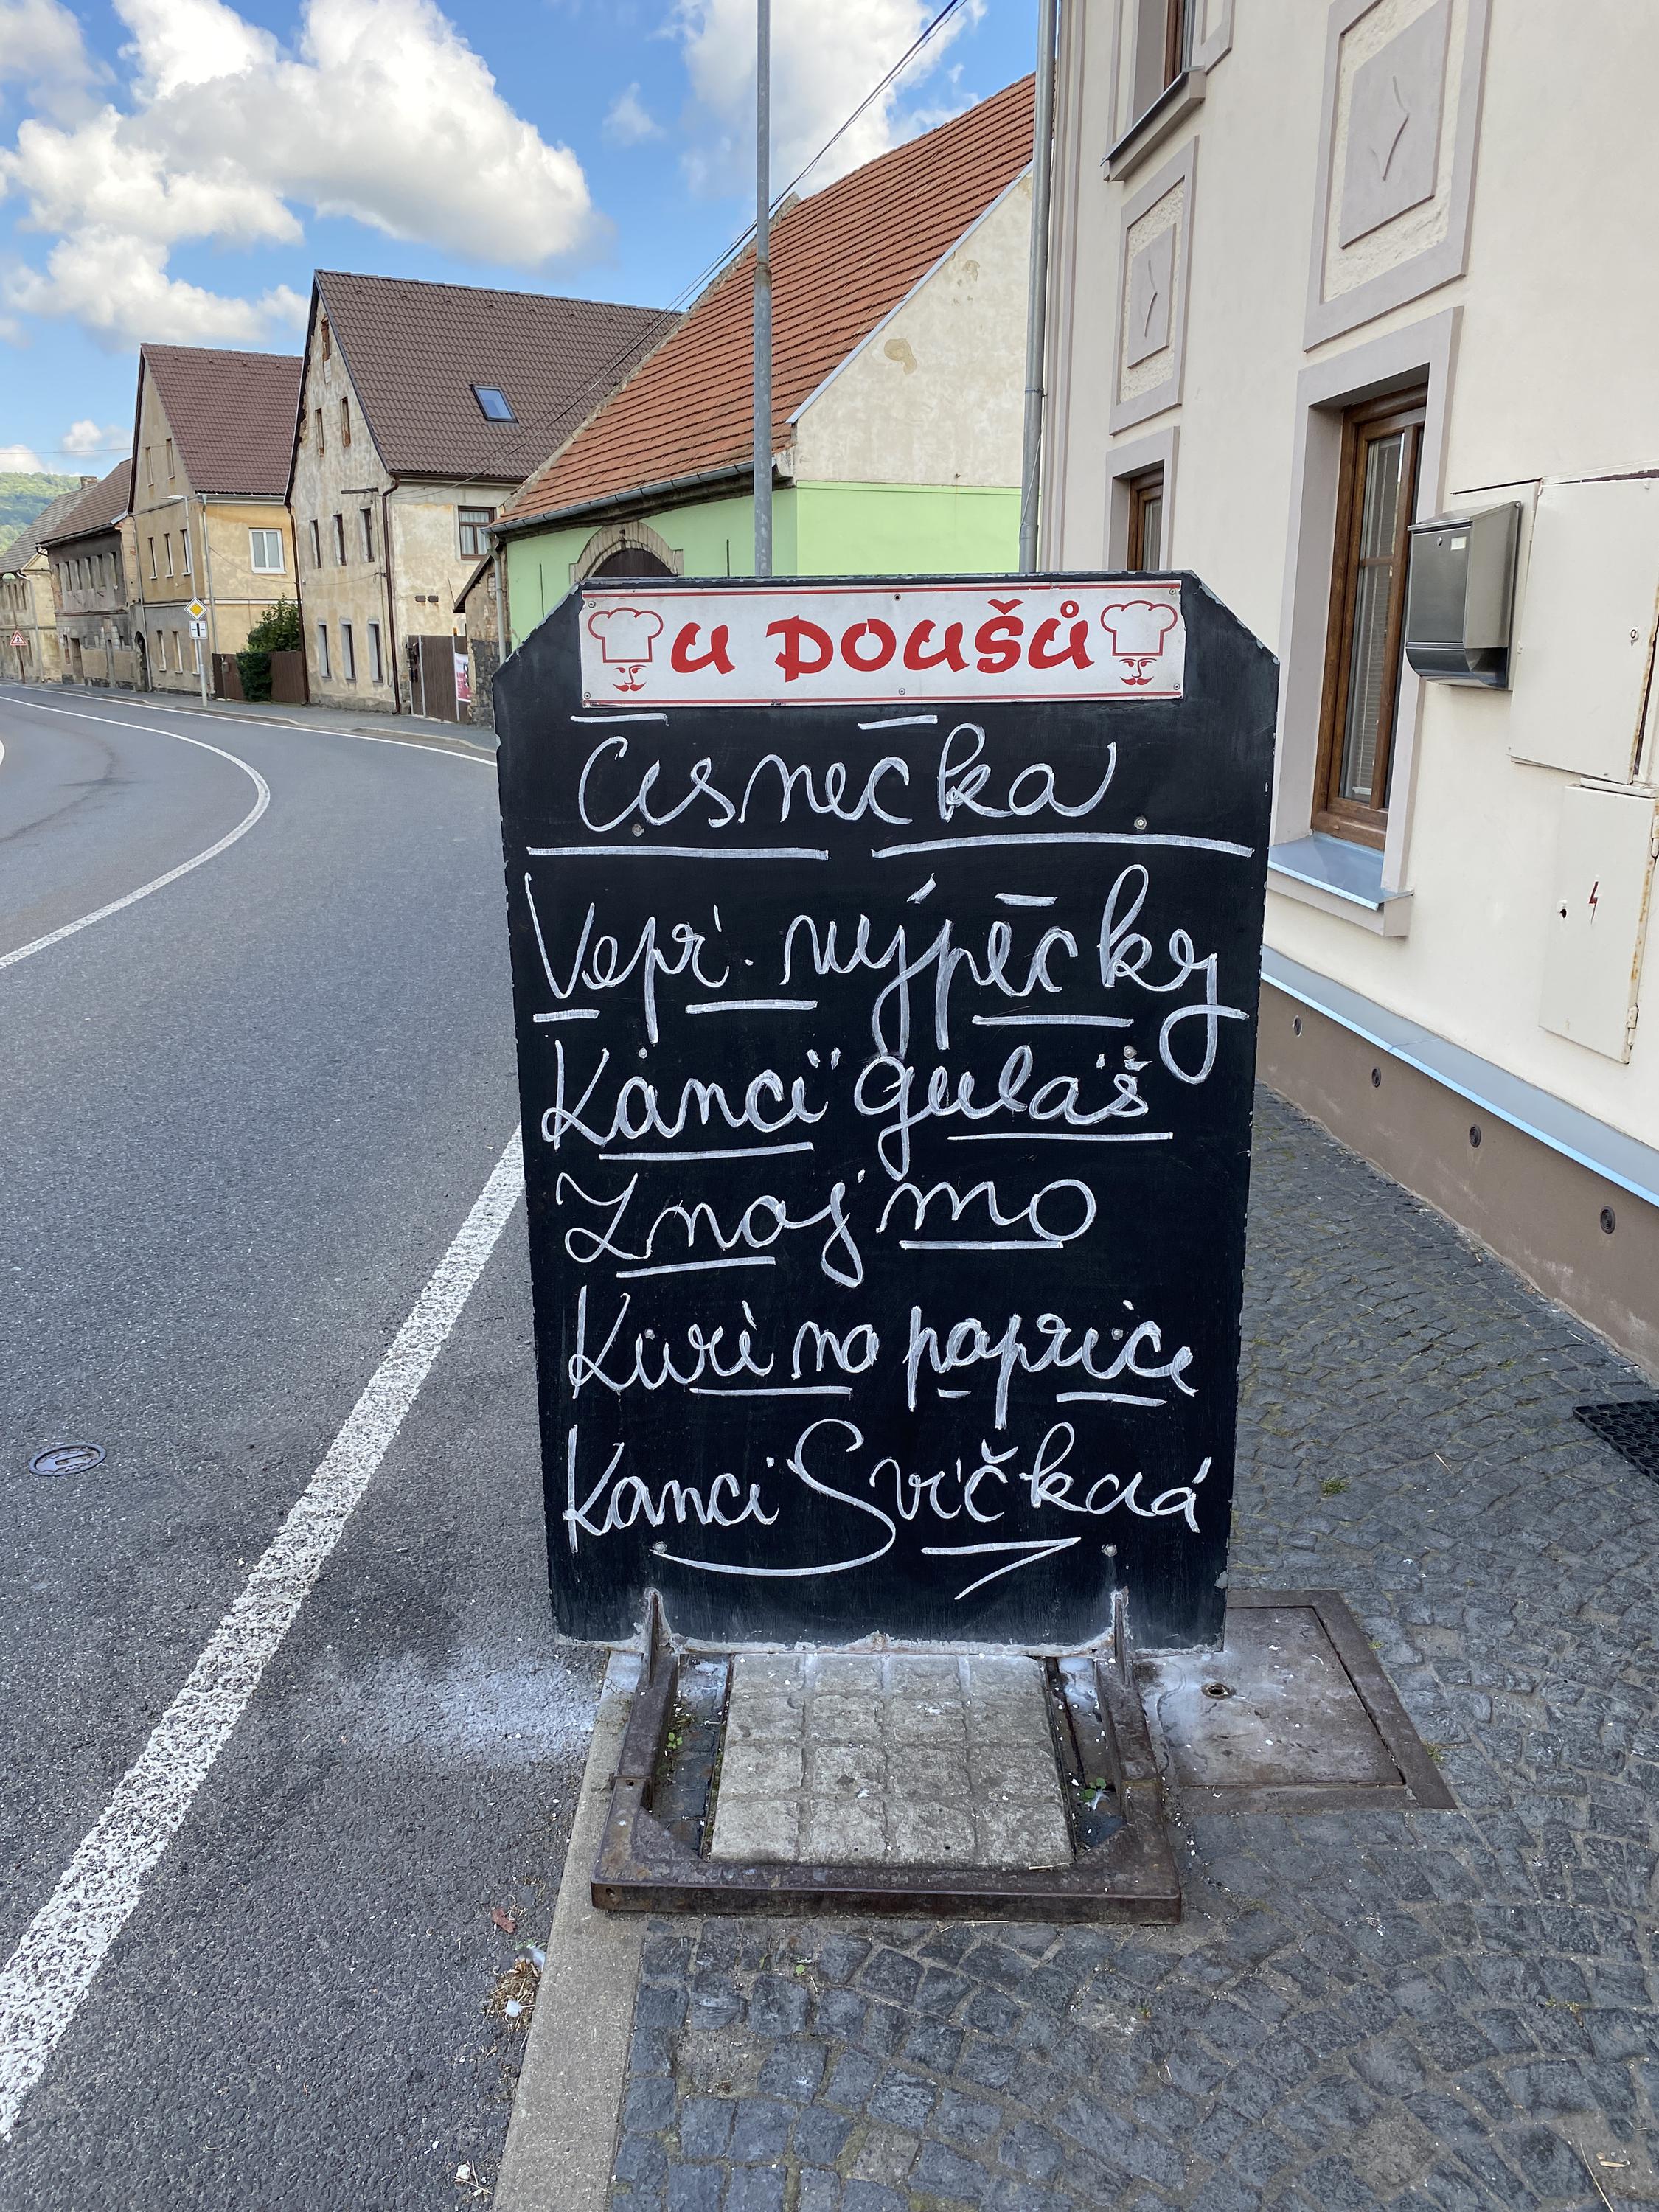 U POUŠŮ
Česnečka
Vepř. výpečky
Kančí guláš
Znojmo
Kuře na paprice
Kančí Svíčková